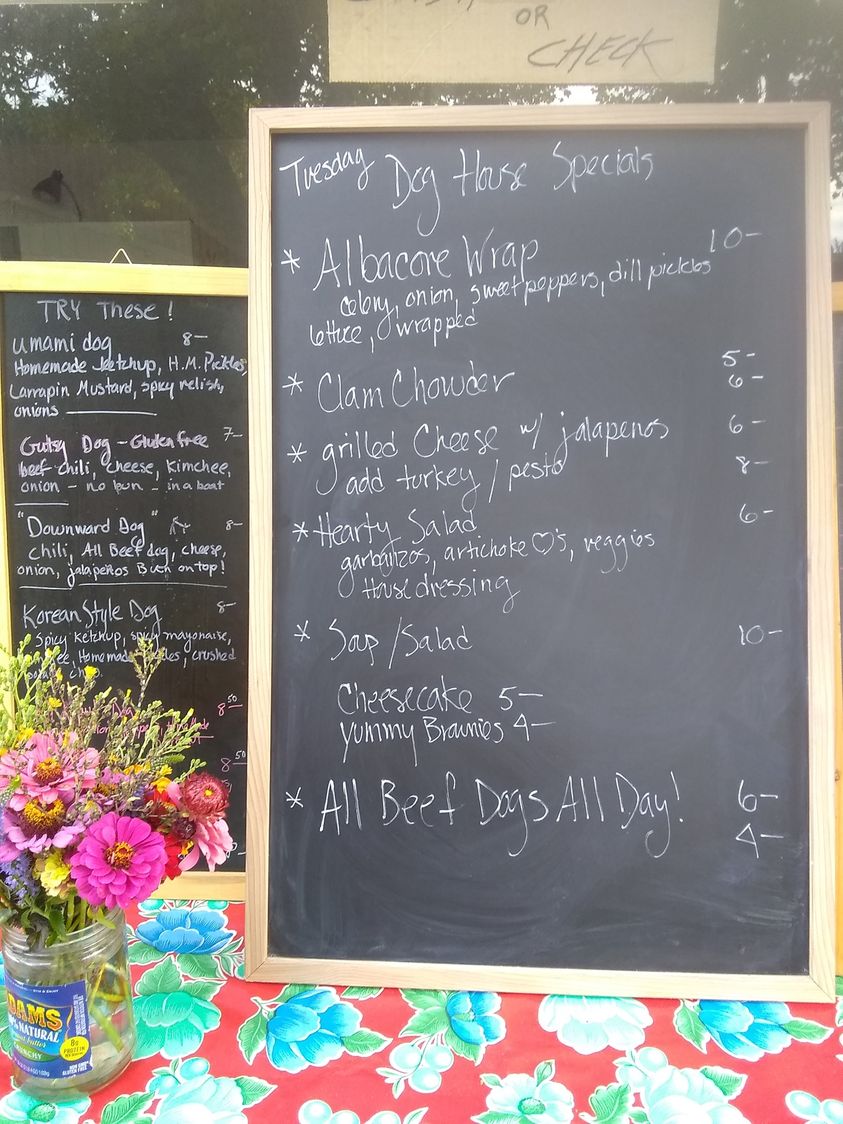 OR
CHECK
Tuesday Dog House Specials
* Albacore Wrap 10-
celery, onion, sweet peppers, dill pickles
lettuce, wrapped
* Clam Chowder 5-
6-
* grilled Cheese w/ jalapenos 6-
add turkey / pesto 8-
* Hearty Salad 6-
garbanzos, artichoke ♡'s, veggies
House dressing
* Soup / Salad 10-
Cheesecake 5-
Yummy Brownies 4-
* All Beef Dogs All Day! 6-
4-
TRY These!
umami dog 8-
Homemade Ketchup, H.M. Pickles,
Larrapin Mustard, spicy relish,
onions
Gutsy Dog - Gluten free 7-
beef chili, cheese, Kimchee,
onion - no bun - in a boat
"Downward Dog" 8-
chili, All Beef dog, cheese,
onion, jalapeños Bun on top!
Korean Style Dog 8-
Spicy Ketchup, spicy mayonaise,
Homemade crushed
8 50
8 50
ADAMS
NATURAL
CRUNCHY
8g
PROTEIN